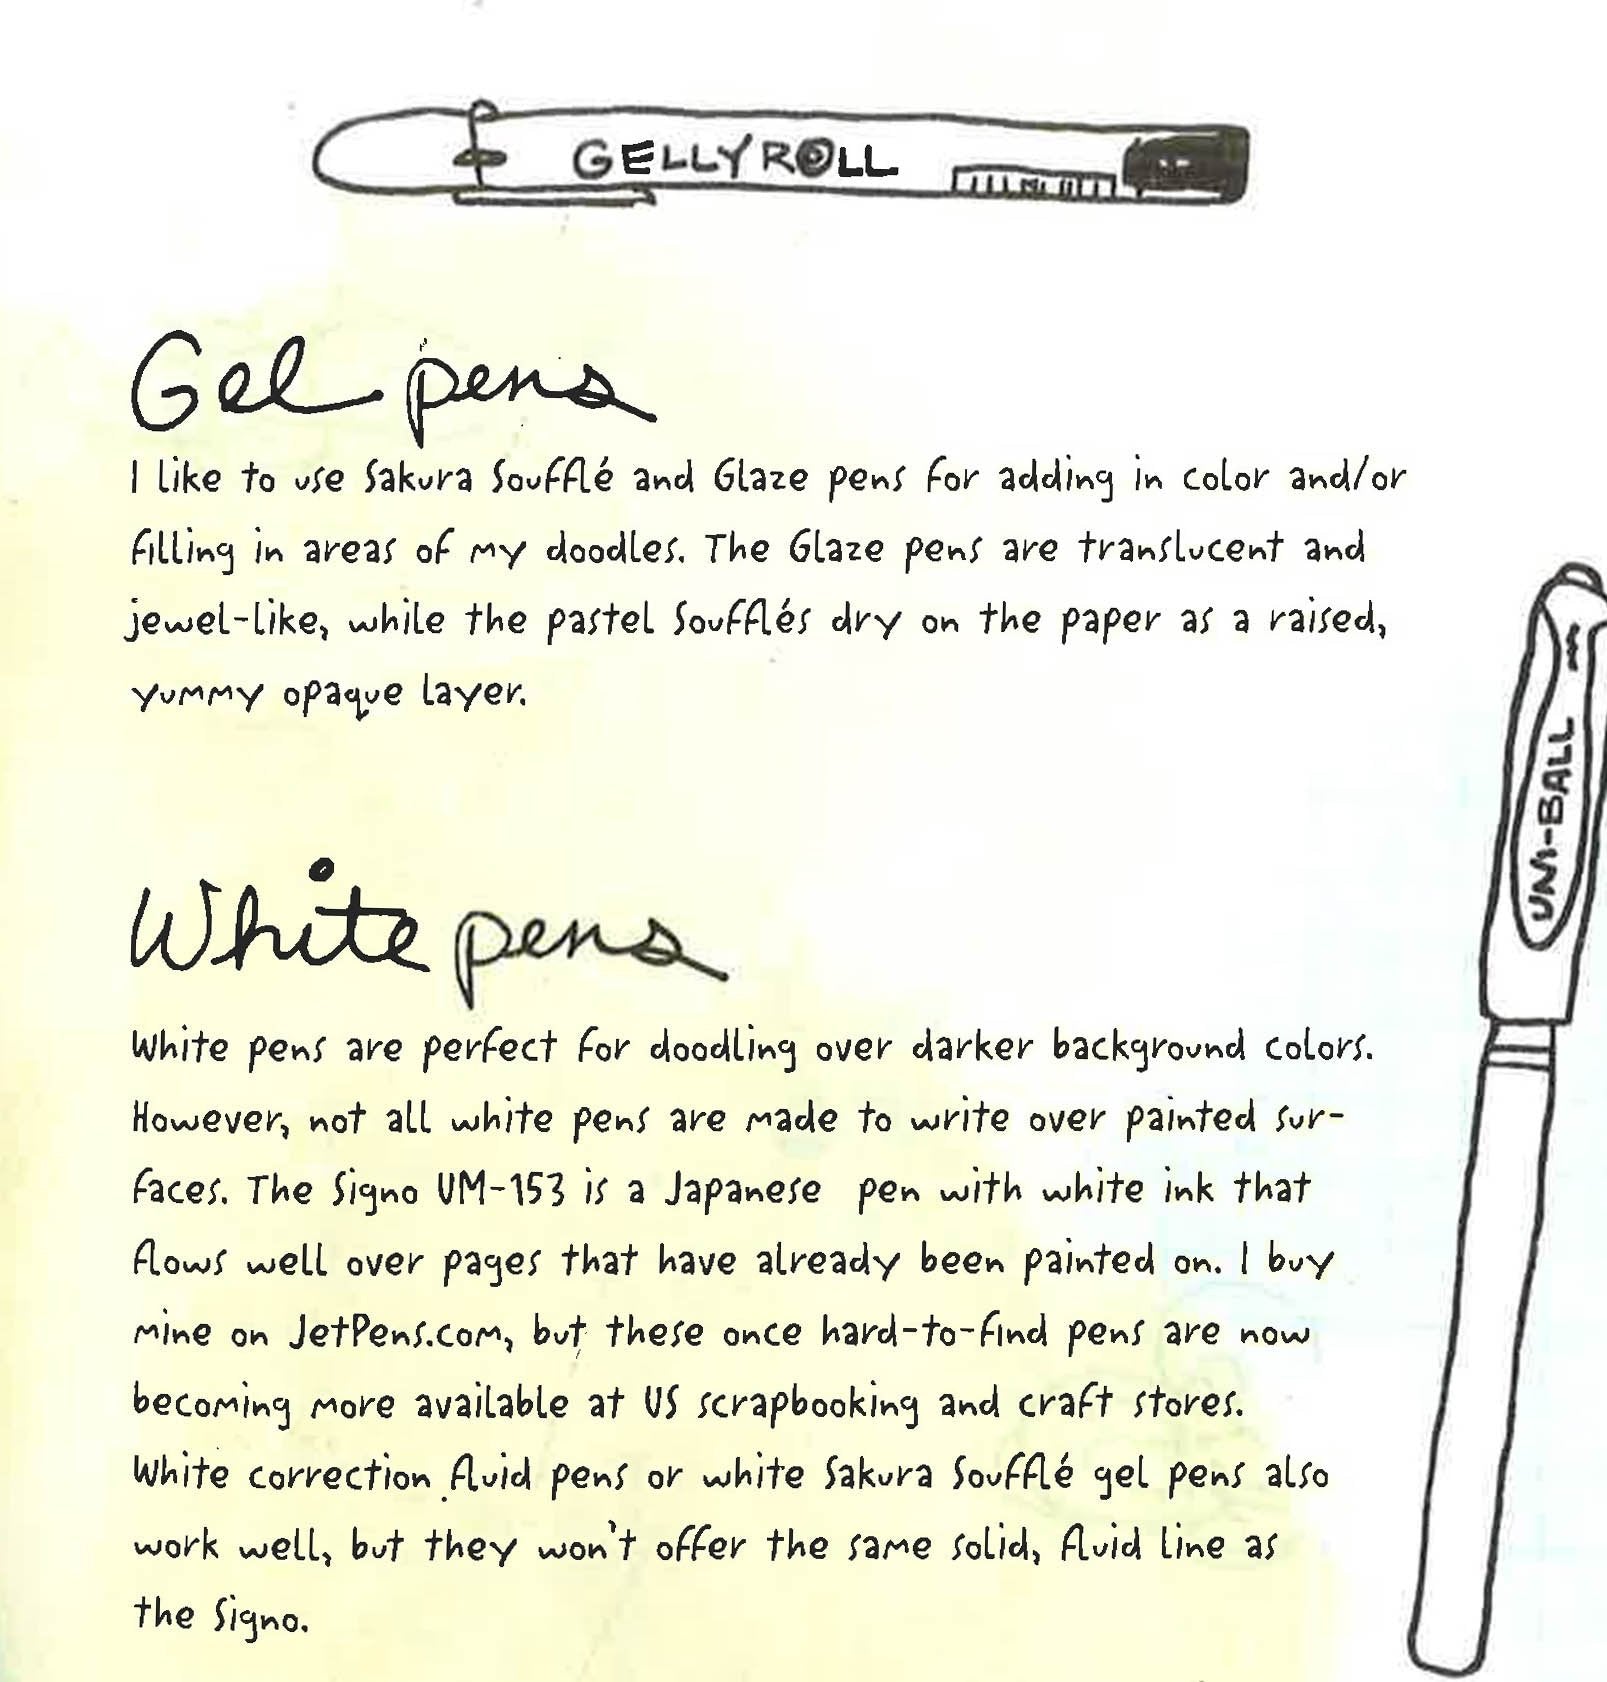 GELLYROLL
Gel pens
I like to use Sakura Soufflé and Glaze pens for adding in color and/or
filling in areas of my doodles. The Glaze pens are translucent and
jewel-like, while the pastel Soufflés dry on the paper as a raised,
yummy opaque layer.
UNI-BALL
White pens
White pens are perfect for doodling over darker background colors.
However, not all white pens are made to write over painted sur-
faces. The Signo UM-153 is a Japanese pen with white ink that
flows well over pages that have already been painted on. I buy
mine on JetPens.com, but these once hard-to-find pens are now
becoming more available at US scrapbooking and craft stores.
White correction fluid pens or white Sakura Soufflé gel pens also
work well, but they won't offer the same solid, fluid line as
the Signo.